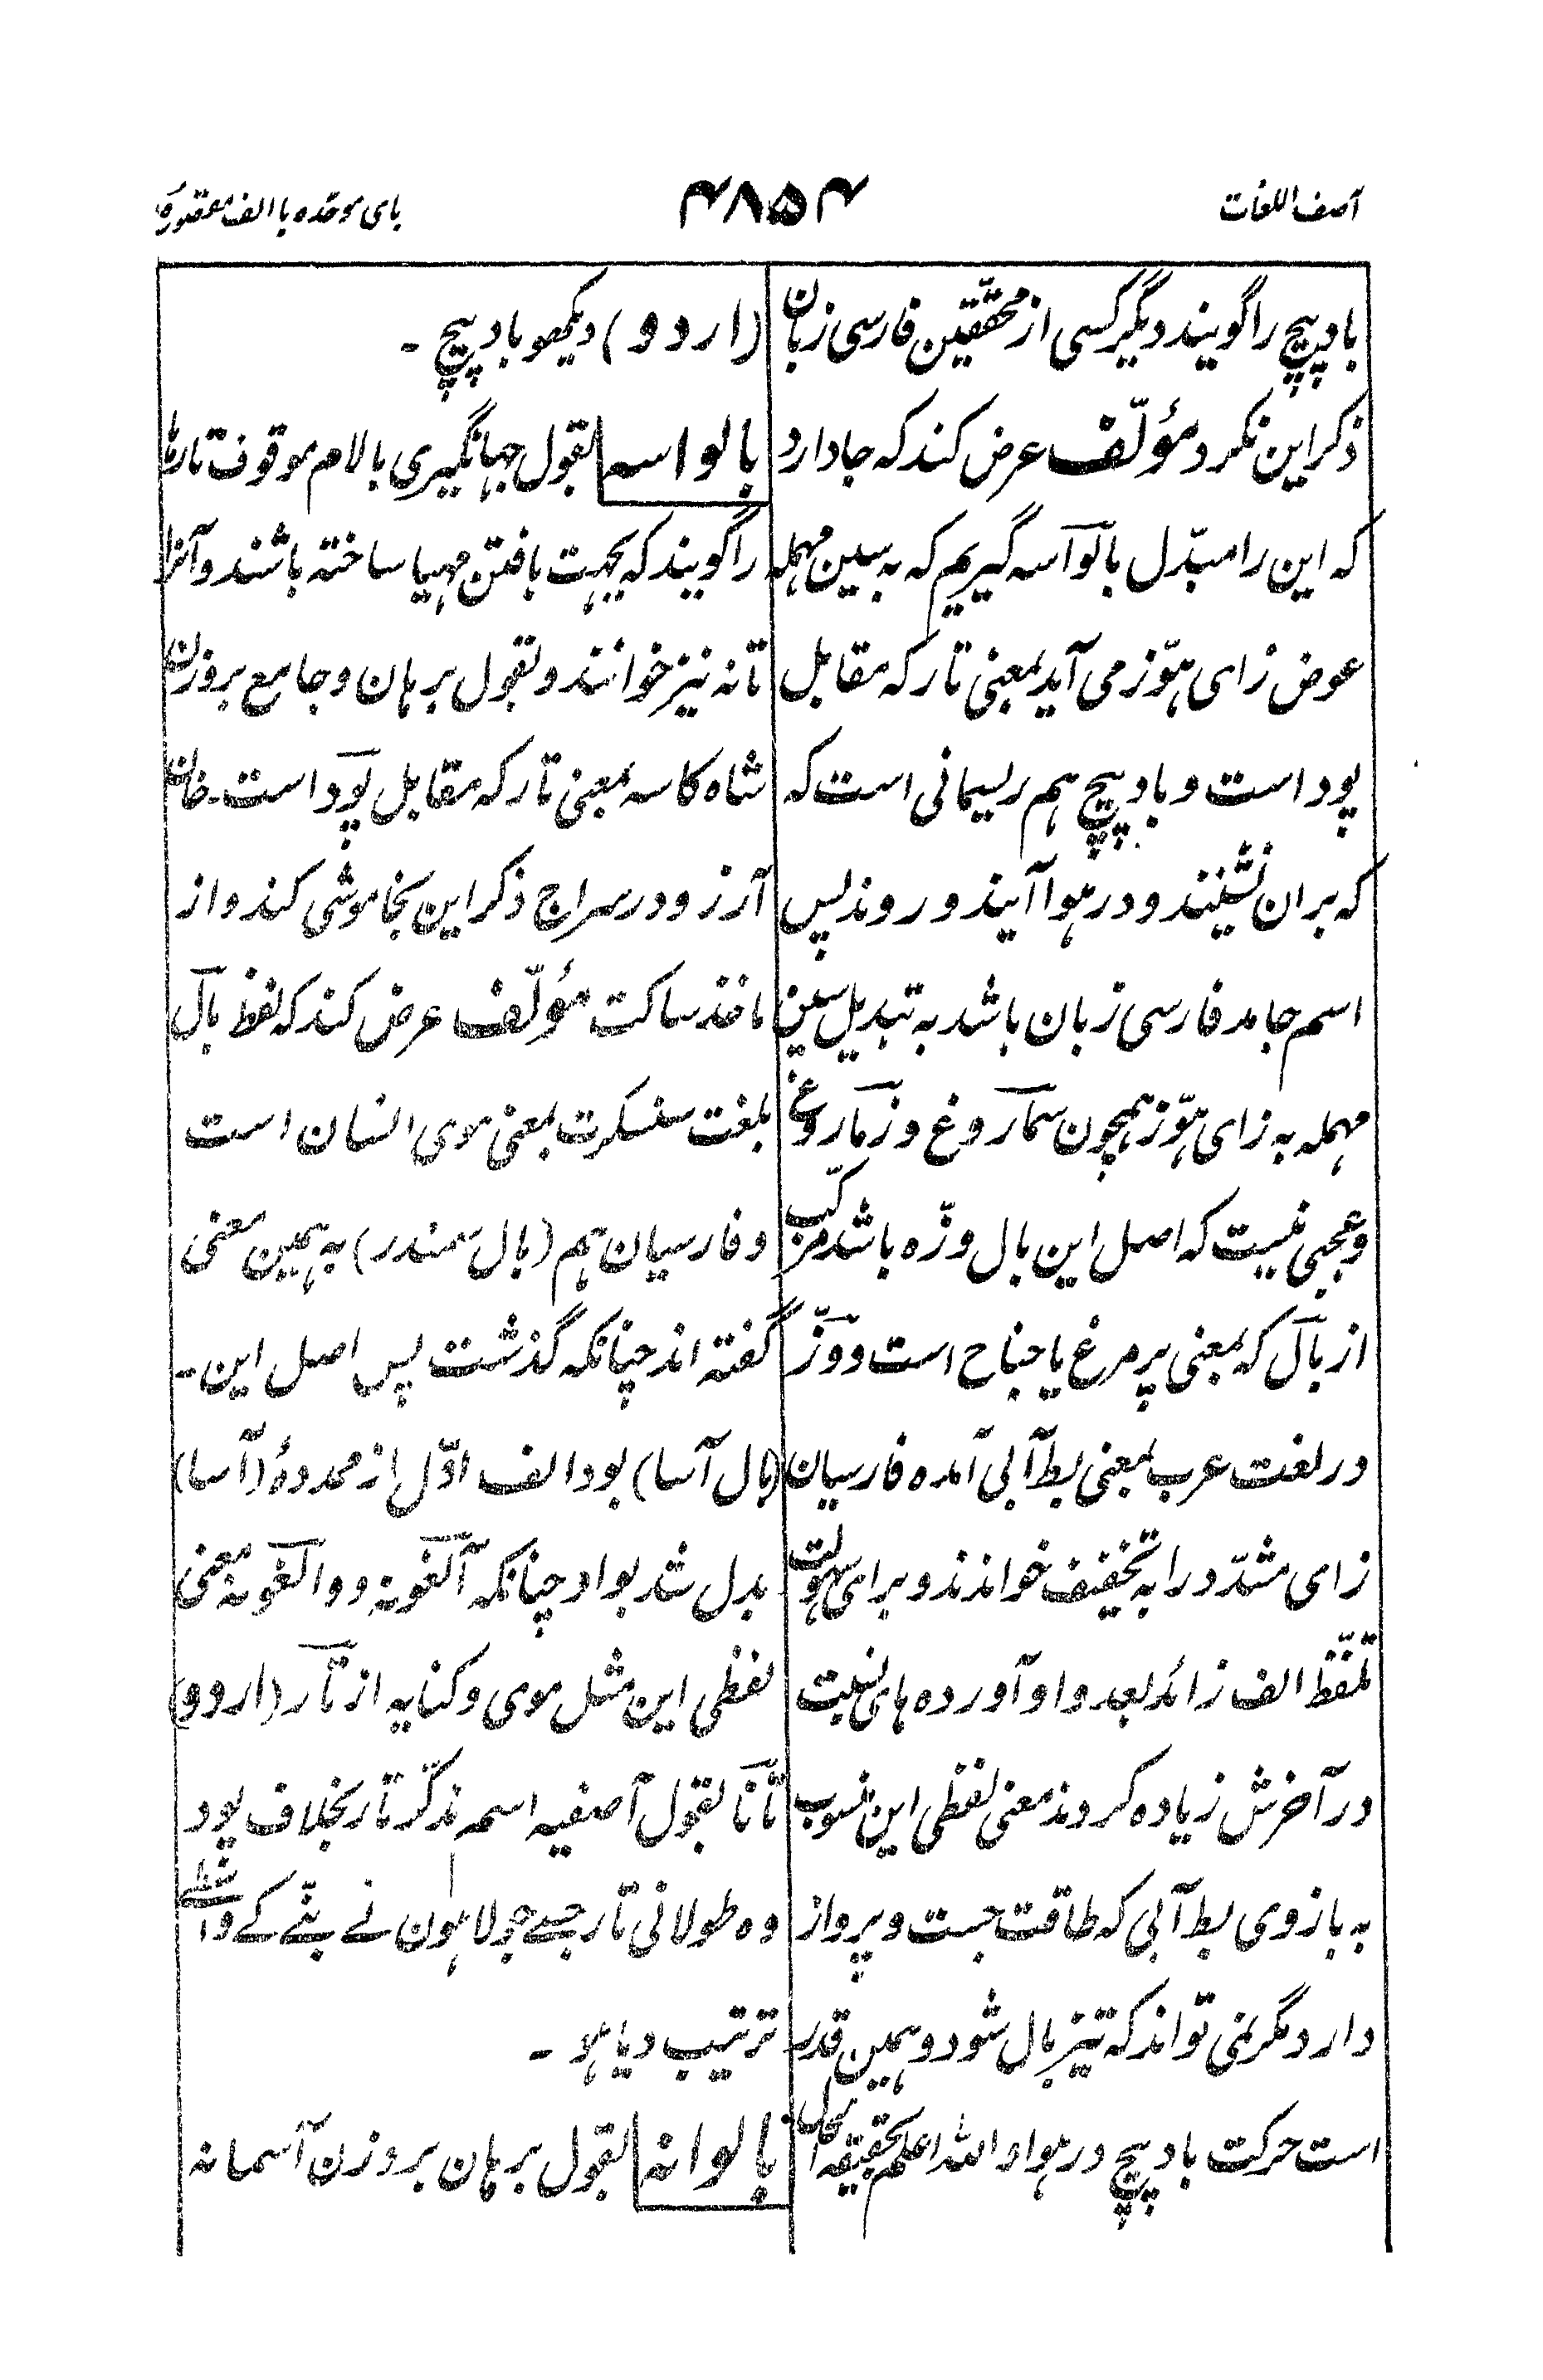 آصف اللغات
۴۸۵۴
بای موحّده با الف مقصوره
بادپیچ را گویند دیگر کسی از محقّقین فارسی زبان
ذکر این نکرد مؤلّف عرض کند که جا دارد
که این را مبدّل بالوآسه گیریم که به سین مهمله
عوض زای ہوّز می آید بمعنی تار که مقابل
پود است و بادپیچ ہم ریسمانی است که
که بران نشینند و در ہوا آیند و روند پس
اسم جامد فارسی زبان باشد به تبدیل سین
مہمله به زای ہوّز ہمچون سمآروغ و زمآروغ
و عجبی نیست که اصل این بال وزّه باشد مرکّب
از بآل که بمعنی پر مرغ یا جناح است و وزّ
در لغت عرب بمعنی بط آبی آمده فارسیان
زای مشدّد را به تخفیف خواندند و برای سہولت
تلفّظ الف زائد بعد واو آورده ہای نسبت
در آخرش زیاده کردند معنی لفظی این منسوب
به بازوی بط آبی که طاقت جست و پرواز
دارد مگر نمی تواند که تیز بال شود و ہمین قدر
است حرکت بادپیچ در ہوا واللہ اعلم بحقیقۃ الحال
(اردو) دیکھو بادپیچ ۔
بالواسہ بقول جہانگیری با لام موقوف تارہا
را گویند که بجہت بافتن مہیا ساخته باشند و آنرا
تانه نیز خوانند و بقول برہان و جامع بروزن
شاه کاسه بمعنی تار که مقابل پود است۔ خان
آرزو در سراج ذکر این بخاموشی کند و از
ماخذ ساکت مؤلّف عرض کند که لفظ بآل
بلغت سنسکرت بمعنی موی انسان است
و فارسیان ہم (بال سمندر) به ہمین معنی
گفته اند چنانکه گذشت پس اصل این ۔
(بال آسا) بود الف اوّل از ممدودۂ (آسا)
بدل شد بواو چنانکه آلغونه و والغونه معنی
لفظی این مثل موی و کنایه از تآر (اردو)
تآنا بقول آصفیه اسم مذکّر تار بخلاف پود
وہ طولانی تار جسے جولاہون نے بننے کے واسطے
ترتیب دیا ہو ۔
بالوانہ بقول برہان بروزن آسمانه